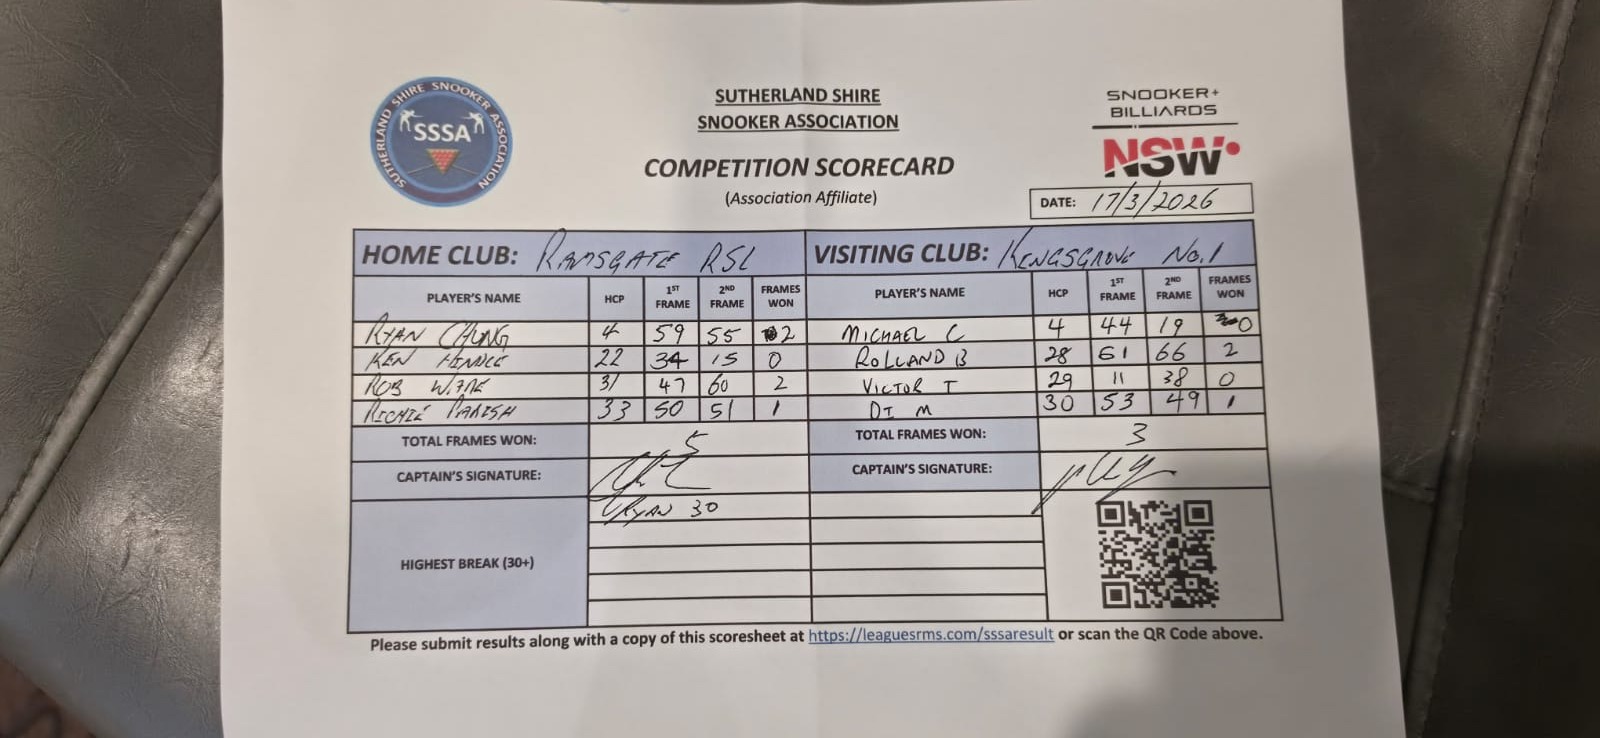 SUTHERLAND SHIRE SNOOKER ASSOCIATION
SSSA
SUTHERLAND SHIRE
SNOOKER ASSOCIATION
COMPETITION SCORECARD
(Association Affiliate)
SNOOKER+
BILLIARDS
NSW
DATE: 17/3/2026
HOME CLUB: RAMSGATE RSL VISITING CLUB: KINGSGROVE No.1
PLAYER'S NAME HCP 1ST FRAME 2ND FRAME FRAMES WON PLAYER'S NAME HCP 1ST FRAME 2ND FRAME FRAMES WON
RYAN CHUNG 4 59 55 2 MICHAEL C 4 44 19 0
KEN 22 34 15 0 ROLLAND B 28 61 66 2
ROB 31 47 60 2 VICTOR T 29 11 38 0
RICHIE PARISH 33 50 51 1 DI M 30 53 49 1
TOTAL FRAMES WON: 5 TOTAL FRAMES WON: 3
CAPTAIN'S SIGNATURE: CAPTAIN'S SIGNATURE:
RYAN 30
HIGHEST BREAK (30+)
Please submit results along with a copy of this scoresheet at https://leaguesrms.com/sssaresult or scan the QR Code above.